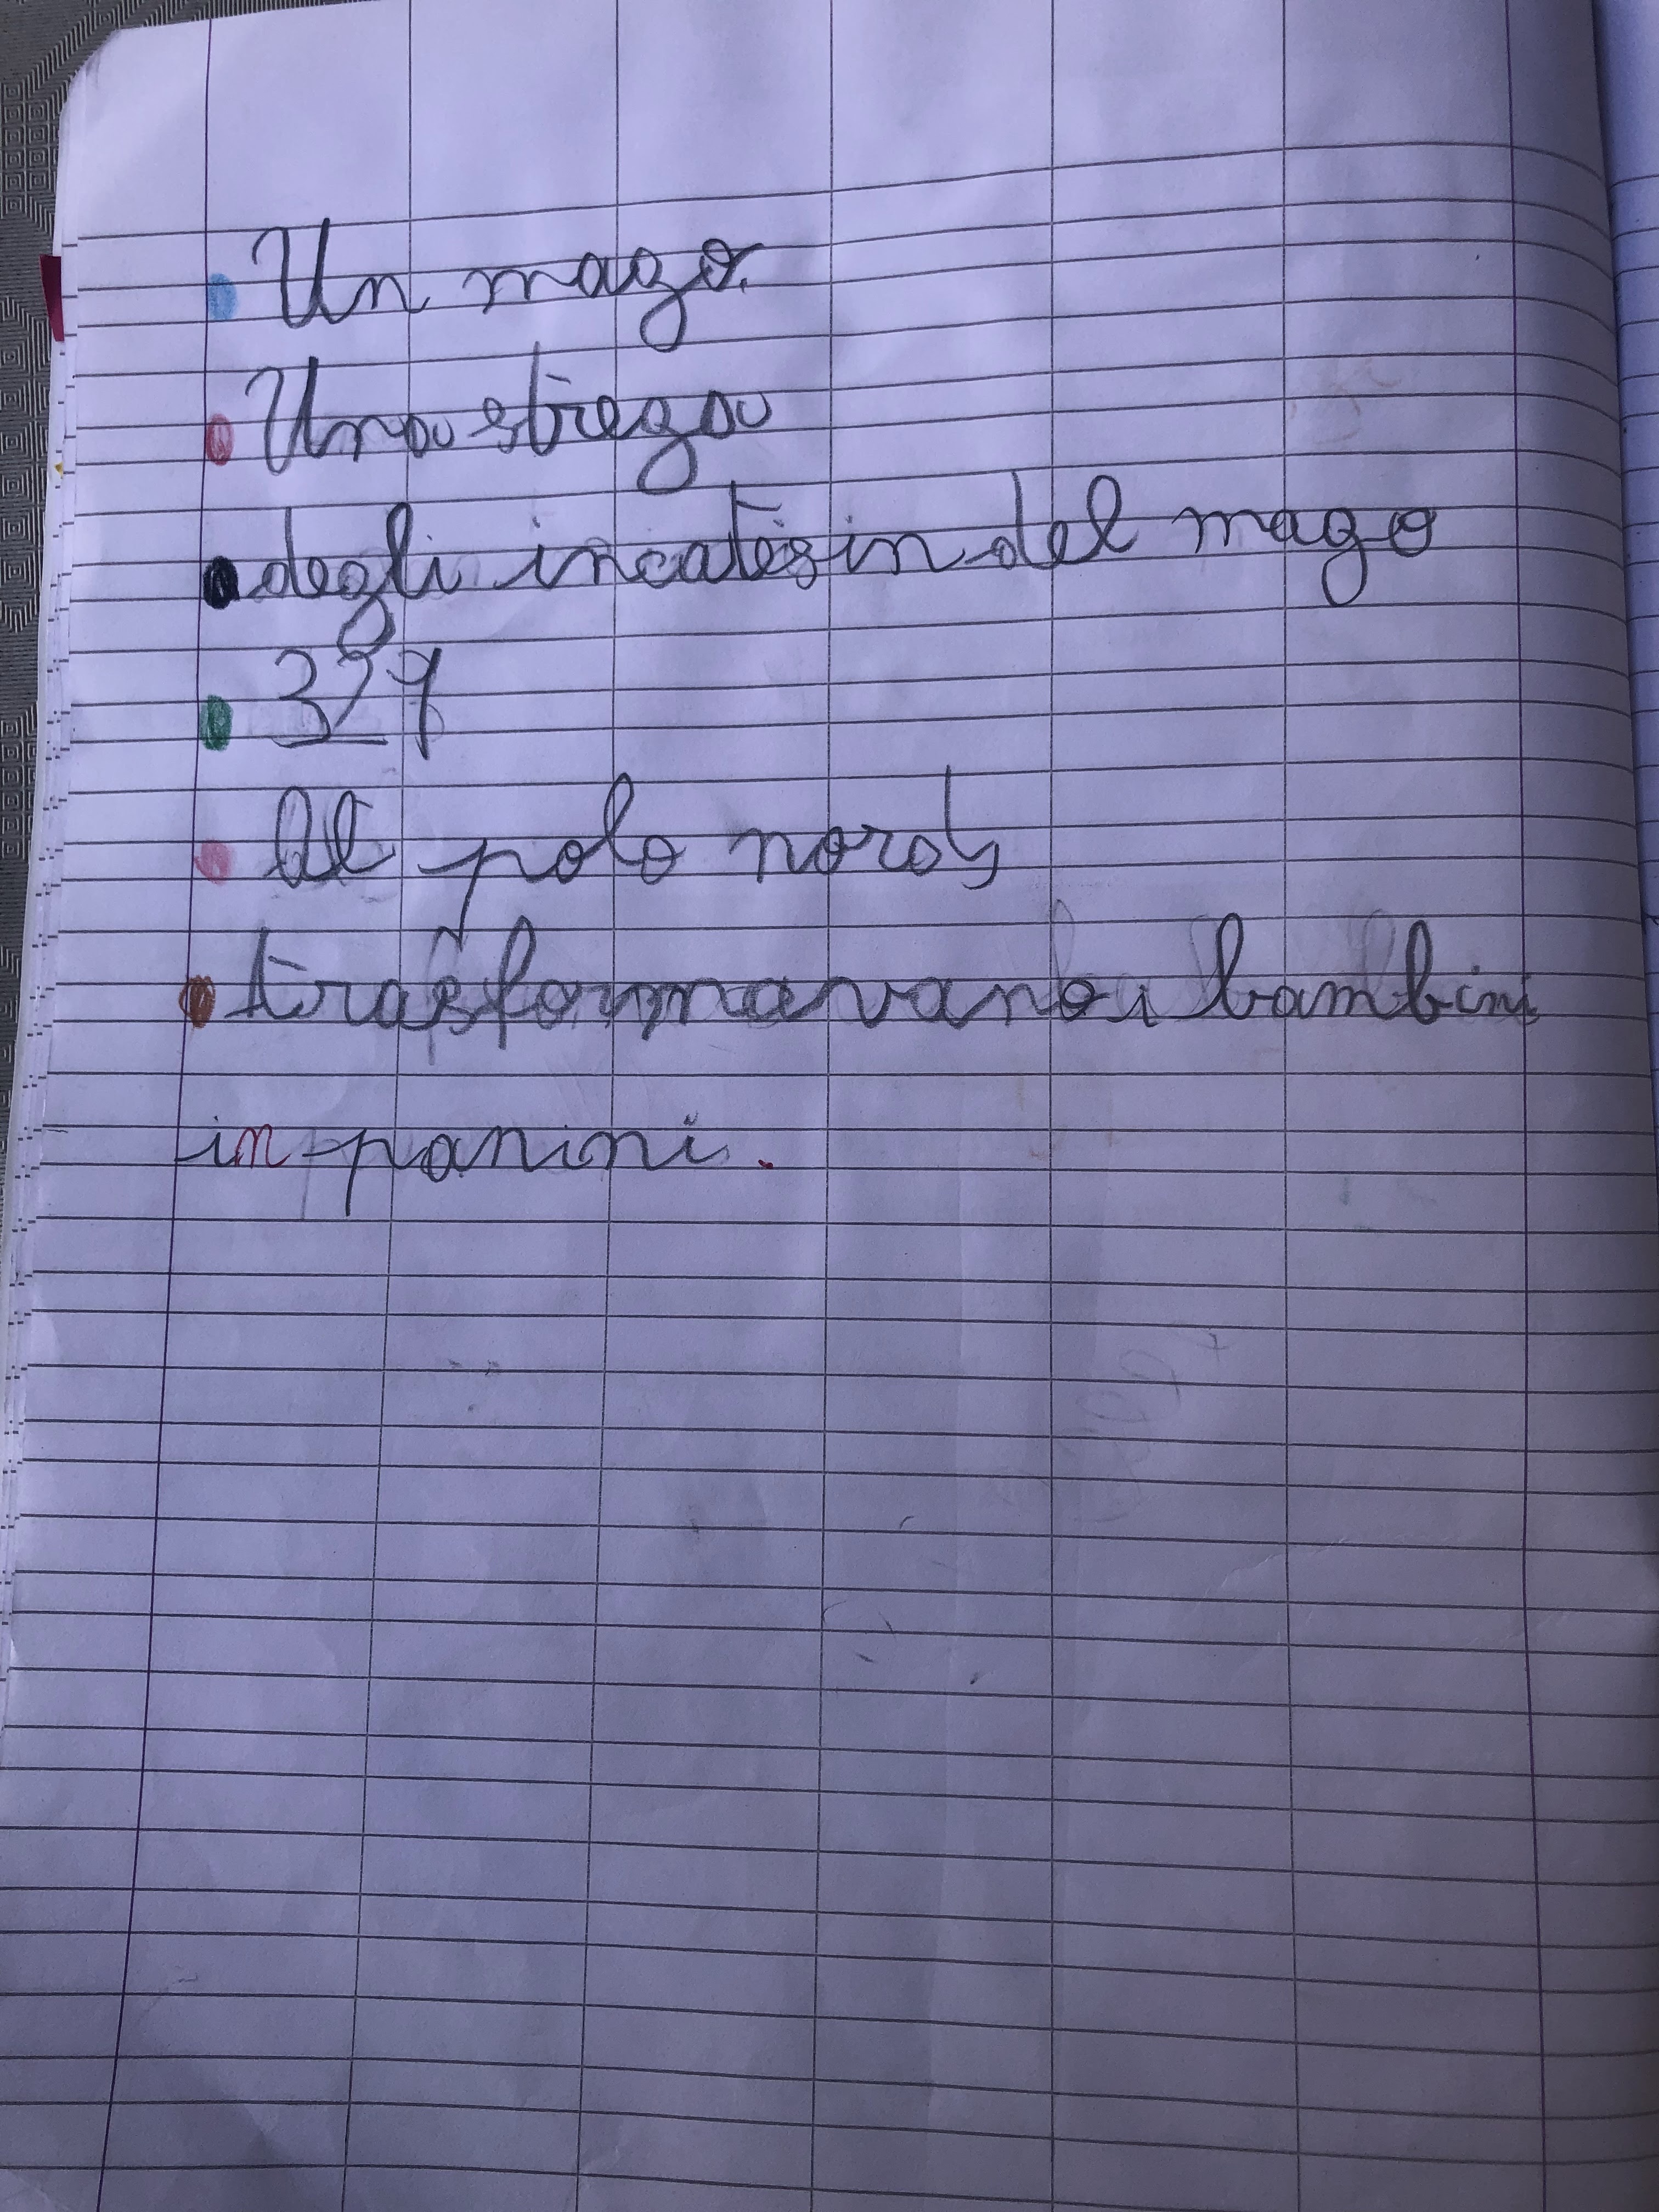 Un mago.
Una strega
degli incatesin del mago
329
Al polo nord
trasformavano i bambini
in panini.